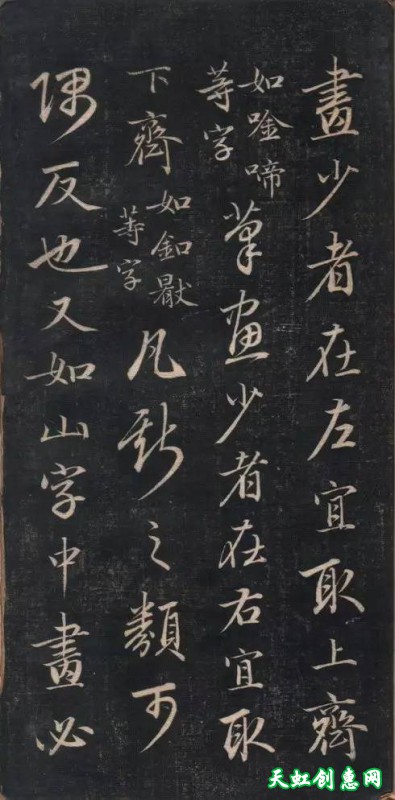 畫少者在左宜取上齊
如唫啼
等字
筆畫少者在右宜取
下齊
如釦
等字
凡斯之類可
隅反也又如山字中畫必
天虹创惠网